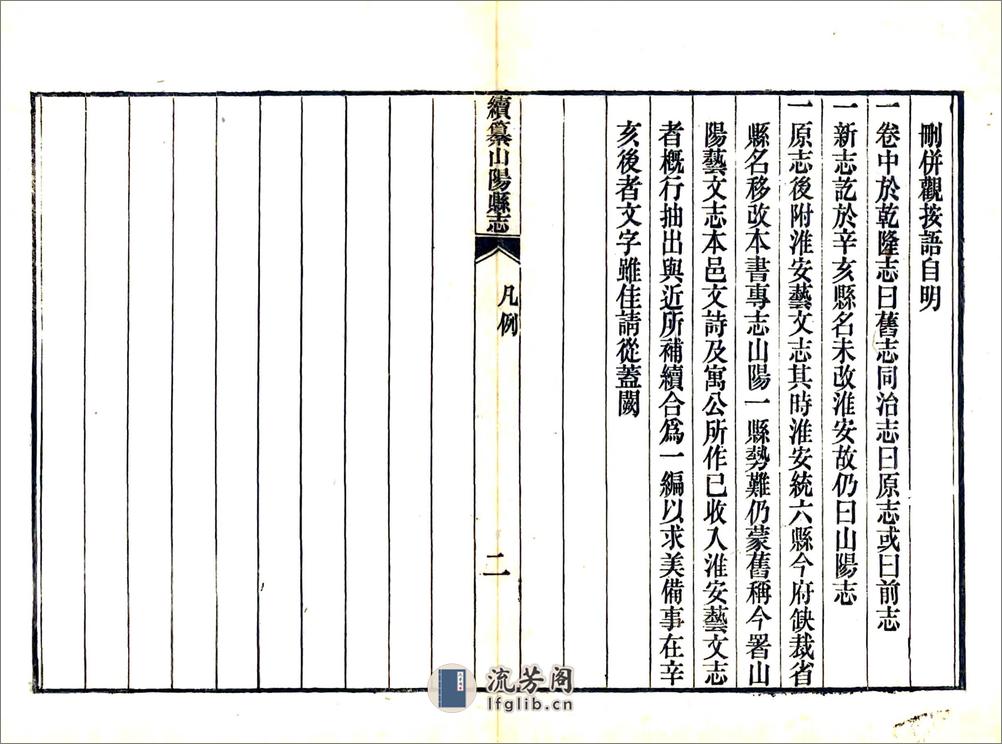 刪併觀按語自明
一卷中於乾隆志曰舊志同治志曰原志或曰前志
一新志訖於辛亥縣名未改淮安故仍曰山陽志
一原志後附淮安藝文志其時淮安統六縣今府缺裁省
縣名移改本書專志山陽一縣勢難仍蒙舊稱今署山
陽藝文志本邑文詩及寓公所作已收入淮安藝文志
者概行抽出與近所補續合爲一編以求美備事在辛
亥後者文字雖佳請從蓋闕
續纂山陽縣志
凡例
二
流芳阁
lfglib.cn